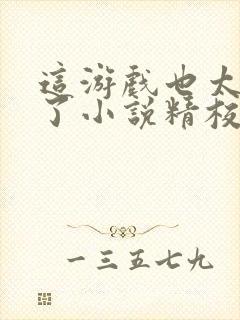 這游戲也太
了小說精校
一三五七九